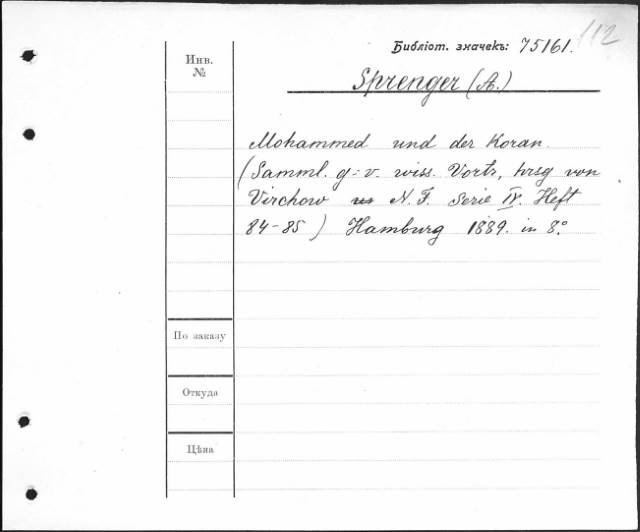 112
Библіот. значекъ: 75161.
Инв. №
Sprenger (A.)
Mohammed und der Koran.
(Samml. g-v. wiss. Vortr, hrsg von
Virchow N. F. Serie IV. Heft
84-85) Hamburg 1889. in 8°.
По заказу
Откуда
Цѣна